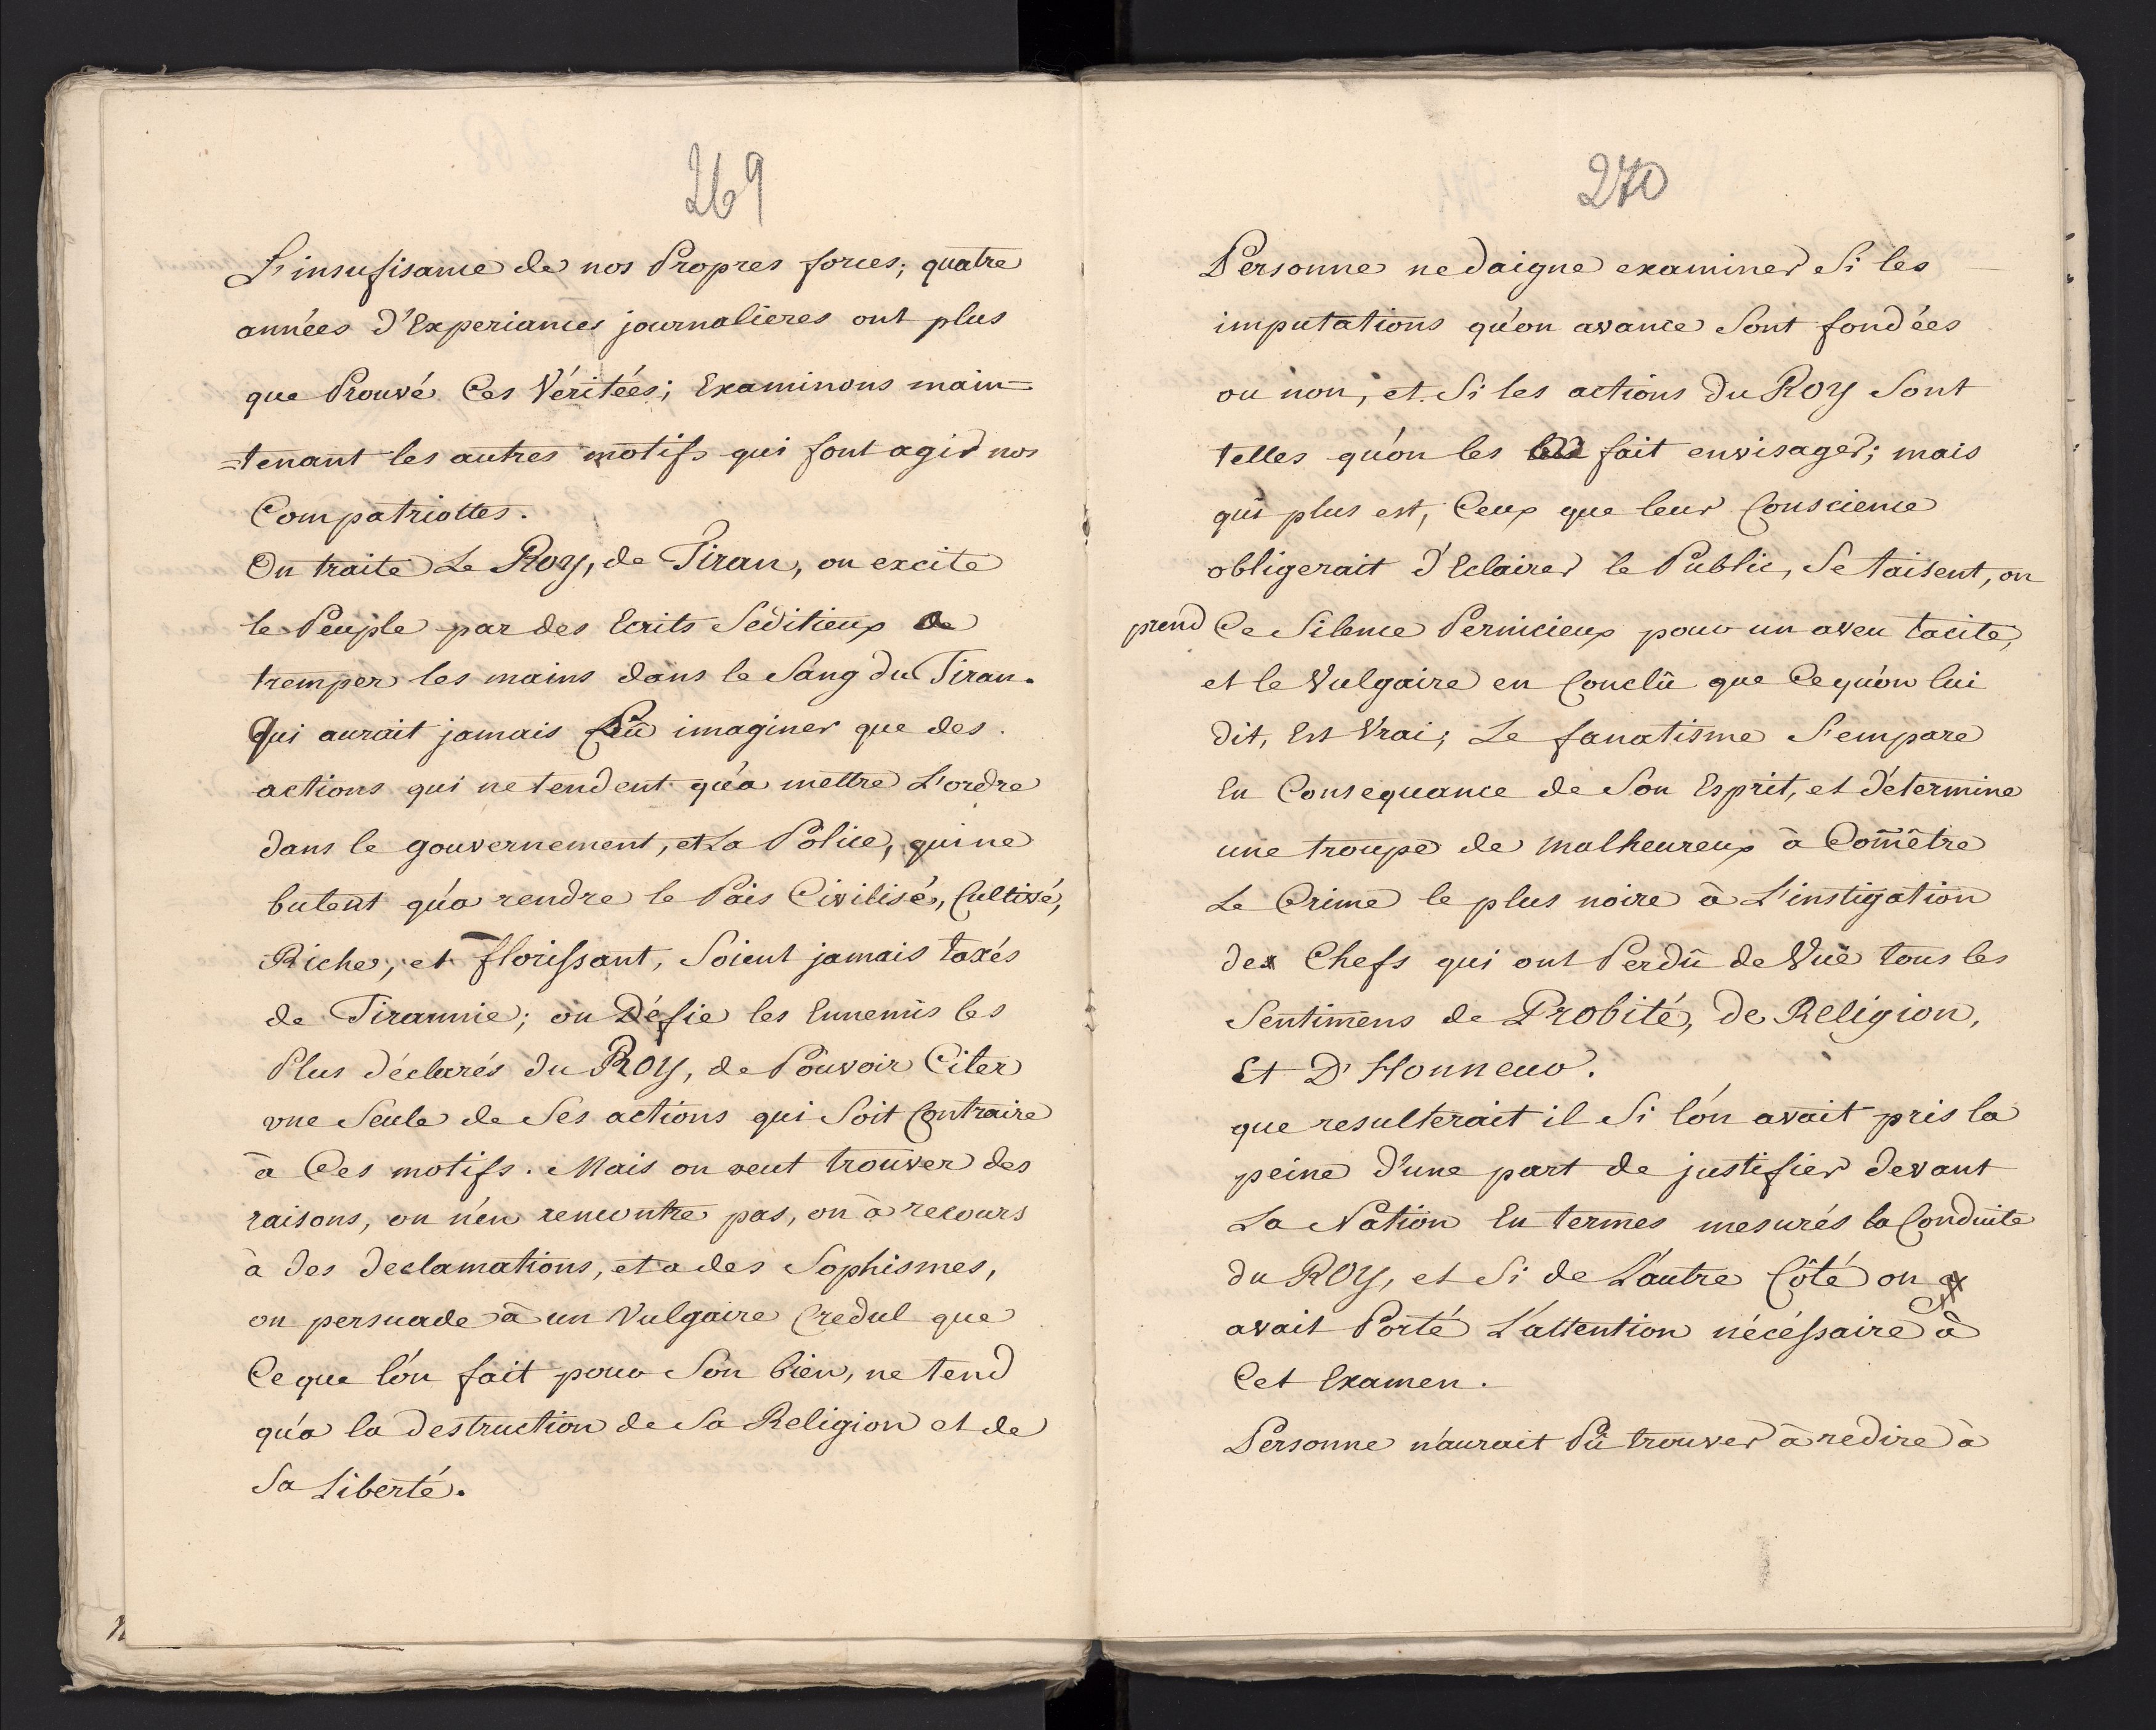 269
L'insufisance de nos Propres forces; quatre
années d'Experiances journalieres ont plus
que Prouvé Ces Véritées; Examinons main=
=tenant les autres motifs qui font agir nos
Compatriottes.
On traite Le Roy, de Tiran, on excite
le Peuple par des Ecrits Seditieux de
tremper les mains dans le Sang du Tiran.
Qui aurait jamais Pû imaginer que des
actions qui ne tendent qu'a mettre L'ordre
dans le gouvernement, et La Police, qui ne
butent qu'a rendre le Païs Civilisé, Cultivé,
Riche, et florissant, Soient jamais taxés
de Tirannie; on Défie les Ennemis les
Plus déclarés du Roy, de Pouvoir Citer
une Seule de Ses actions qui Soit Contraire
à Ces motifs. Mais on veut trouver des
raisons, on n'en rencontre pas, on à recours
à des declamations, et a des Sophismes,
on persuade à un Vulgaire Credul que
Ce que l'on fait pour Son bien, ne tend
qu'a la destruction de Sa Religion et de
Sa Liberté.
270
Personne ne daigne examiner Si les
imputations qu'on avance Sont fondées
ou non, et Si les actions du Roy Sont
telles qu'on les fait envisager; mais
qui plus est, Ceux que leur Conscience
obligerait d'Eclairer le Public, Se taisent, on
prend Ce Silence Pernicieux pour un aveu tacite,
et le Vulgaire en Conclû que Ce qu'on lui
dit, Est Vrai; Le fanatisme S'empare
En Consequance de Son Esprit, et détermine
une troupe de malheureux à Com̃ètre
Le Crime le plus noire à L'instigation
des Chefs qui ont Perdû de Vuë tous les
Sentimens de Probité, de Religion,
Et D'Honneur.
que resulterait il Si l'on avait pris la
peine d'une part de justifier devant
La Nation En termes mesurés la Conduite
du Roy, et Si de L'autre Côté on
avait Porté L'attention nécéssaire à
Cet Examen.
Personne n'aurait Pû trouver à redire à